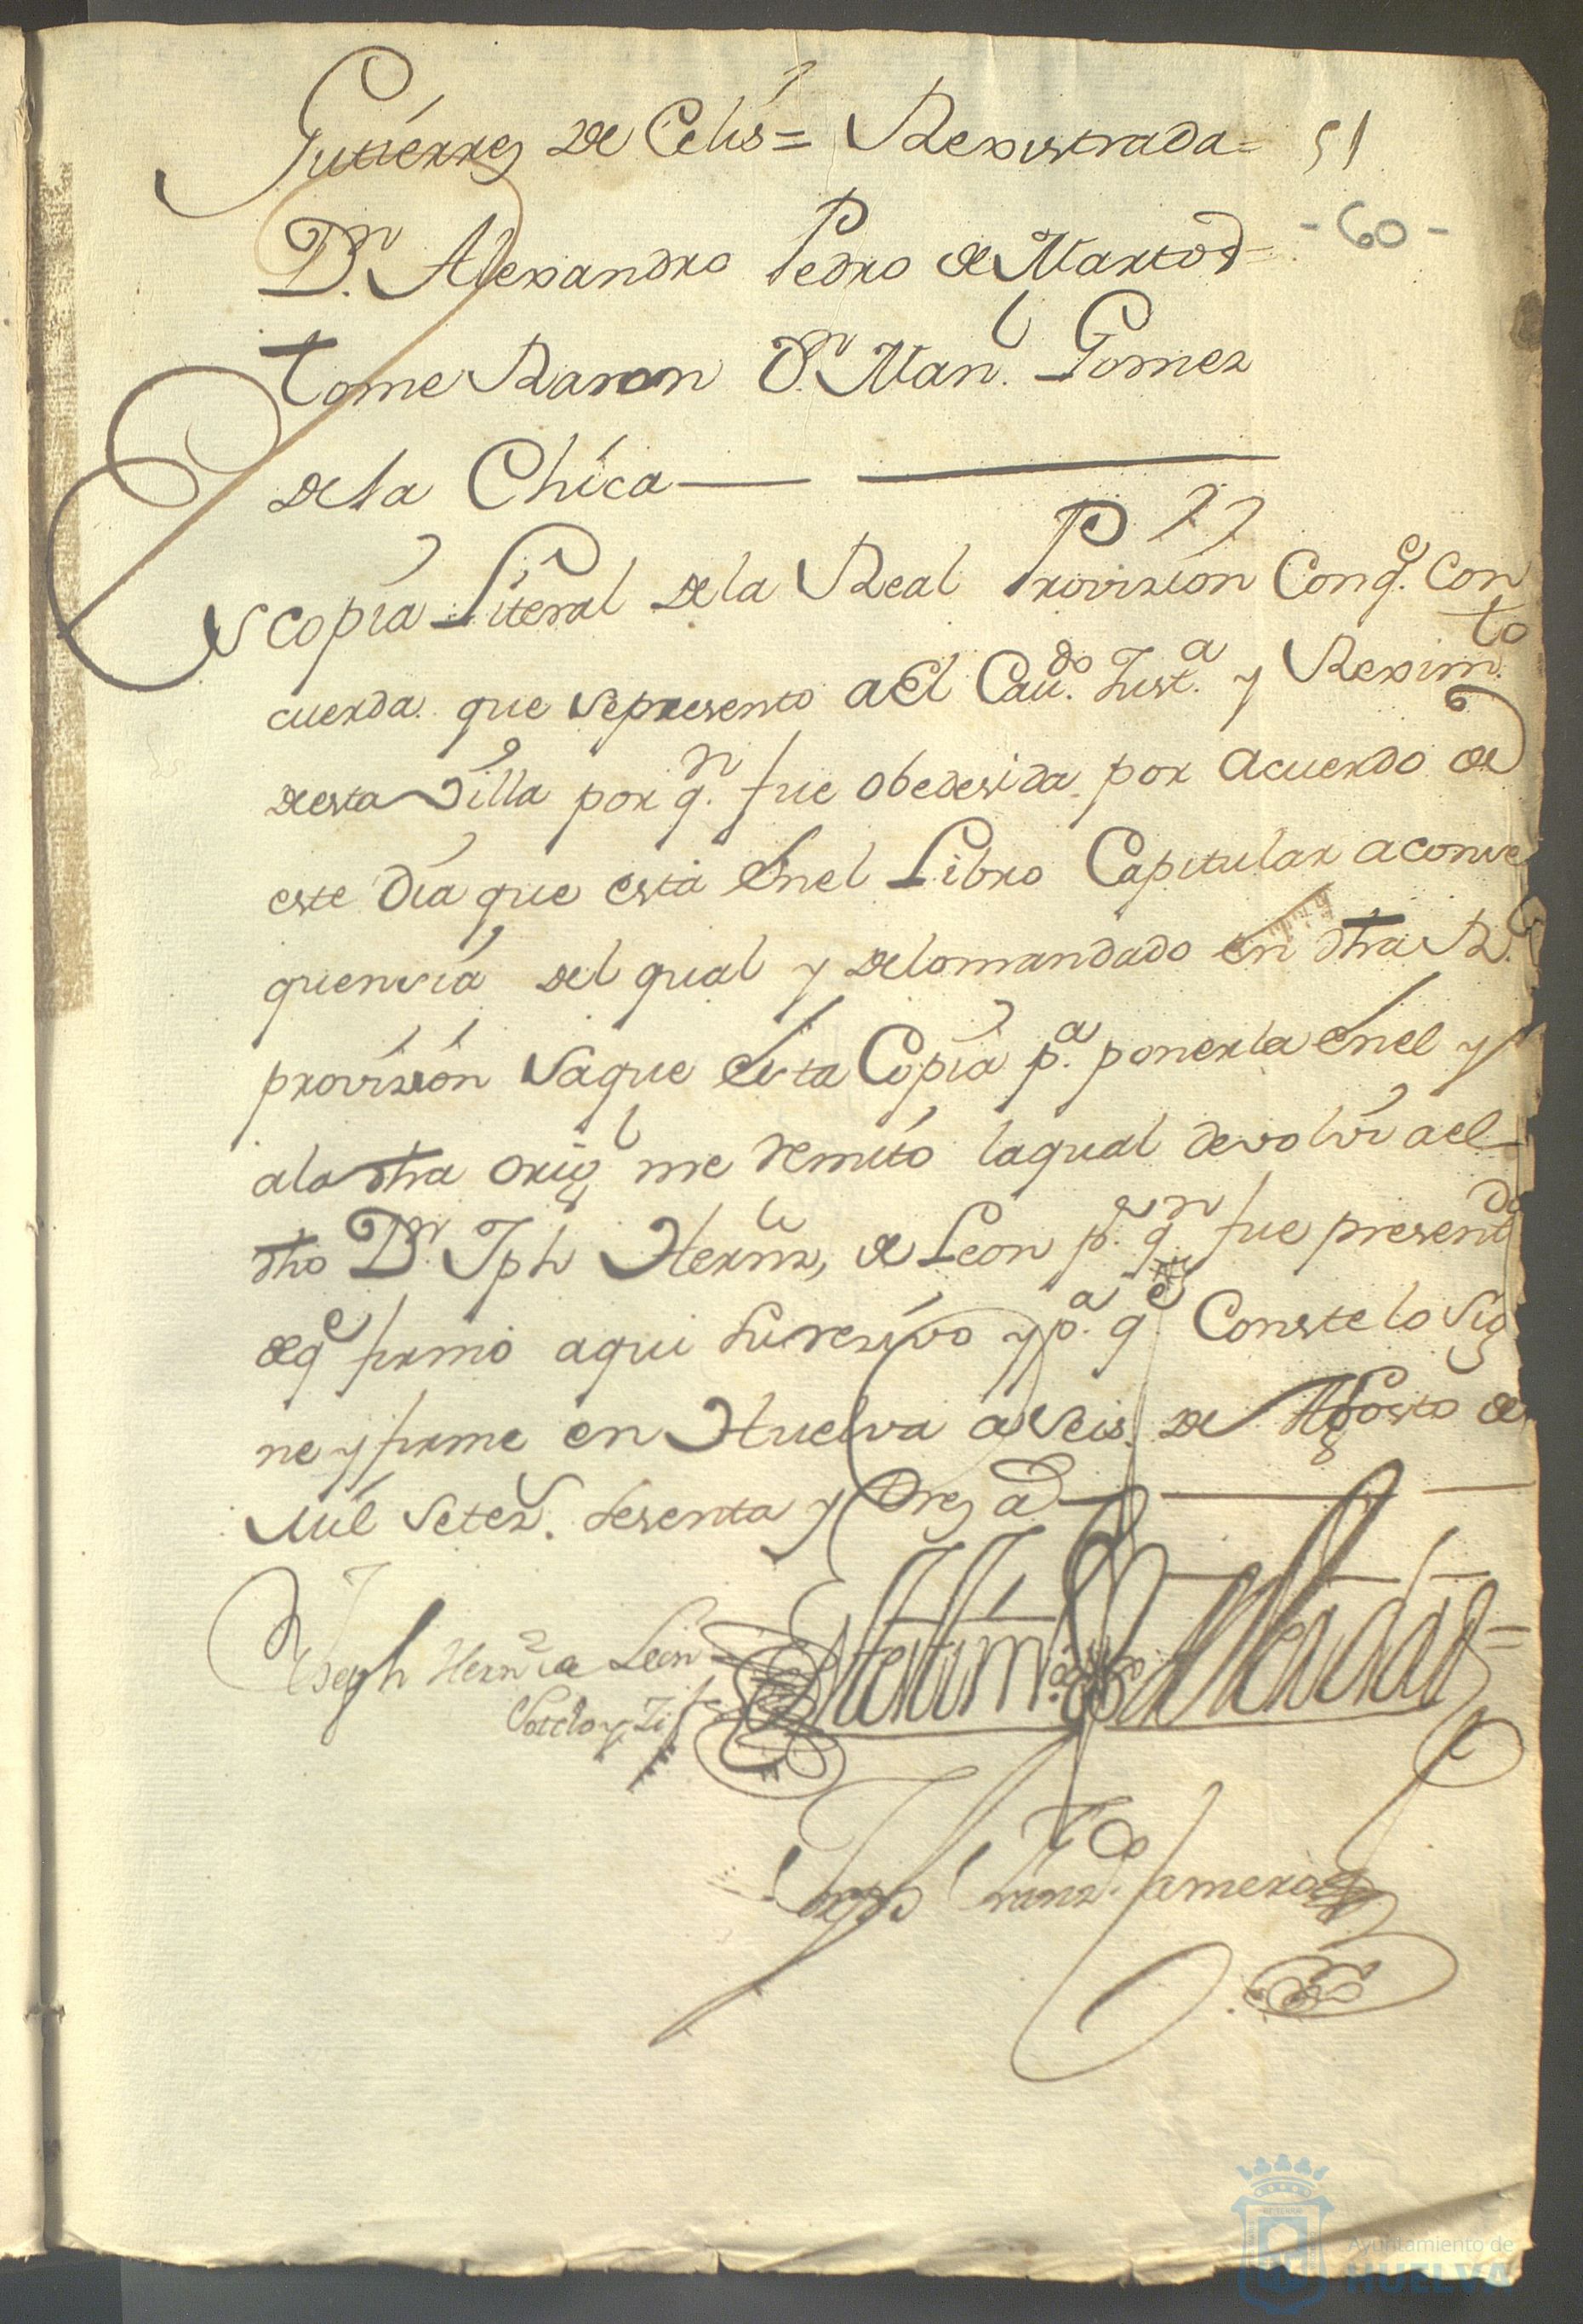 Gutierrez de Celis = Rexistrada = 51
Dn. Alexandro Pedro de Martos = - 60 -
tome Razon Dn. Manl. Gomez
de la Chica
Es copia Literal de la Real Provizion Con qe. con
cuerda. que se presento a el Cavdo. Justa. y Reximto.
de esta Villa por qn. fue obedesida por Acuerdo de
este Dia que está En el Libro Capitular a conse
quensia del qual y de lo mandado en dha Rl.
provizion Saque Esta Copia pa. ponerla En el y
a la dha origl. me remito la qual devolvi a el
dho Dn. Jph Hernz, de Leon pr. qn. fue presentdo
de qe firmó aqui su resivo y pa. qe. Conste lo sig
ne y firme en Huelva a seis de Agosto de
mil Setez. sesenta y tres a
Joseph Hernz de Leon
En testimo. de Verdad =
Joseph Franzco.
Ayuntamiento de
HUELVA